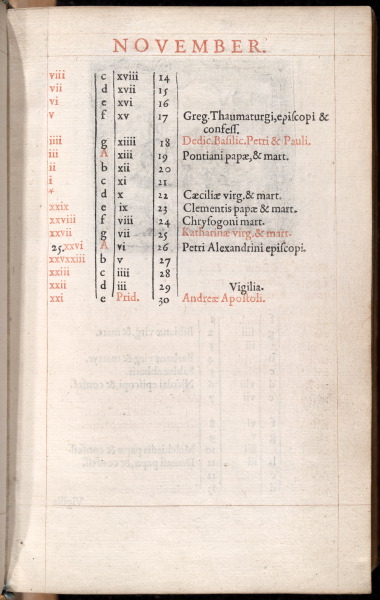 NOVEMBER.
viii c xviii 14
vii d xvii 15
vi e xvi 16
v f xv 17 Greg. Thaumaturgi, epiſcopi &
confeſſ.
iiii g xiiii 18 Dedic. Baſilic. Petri & Pauli.
iii A xiii 19 Pontiani papæ, & mart.
ii b xii 20
i c xi 21
* d x 22 Cæciliæ virg. & mart.
xxix e ix 23 Clementis papæ & mart.
xxviii f viii 24 Chryſogoni mart.
xxvii g vii 25 Katharinæ virg. & mart.
25.xxvi A vi 26 Petri Alexandrini epiſcopi.
xxvxxiiii b v 27
xxiii c iiii 28
xxii d iii 29 Vigilia.
xxi e Prid. 30 Andreæ Apoſtoli.